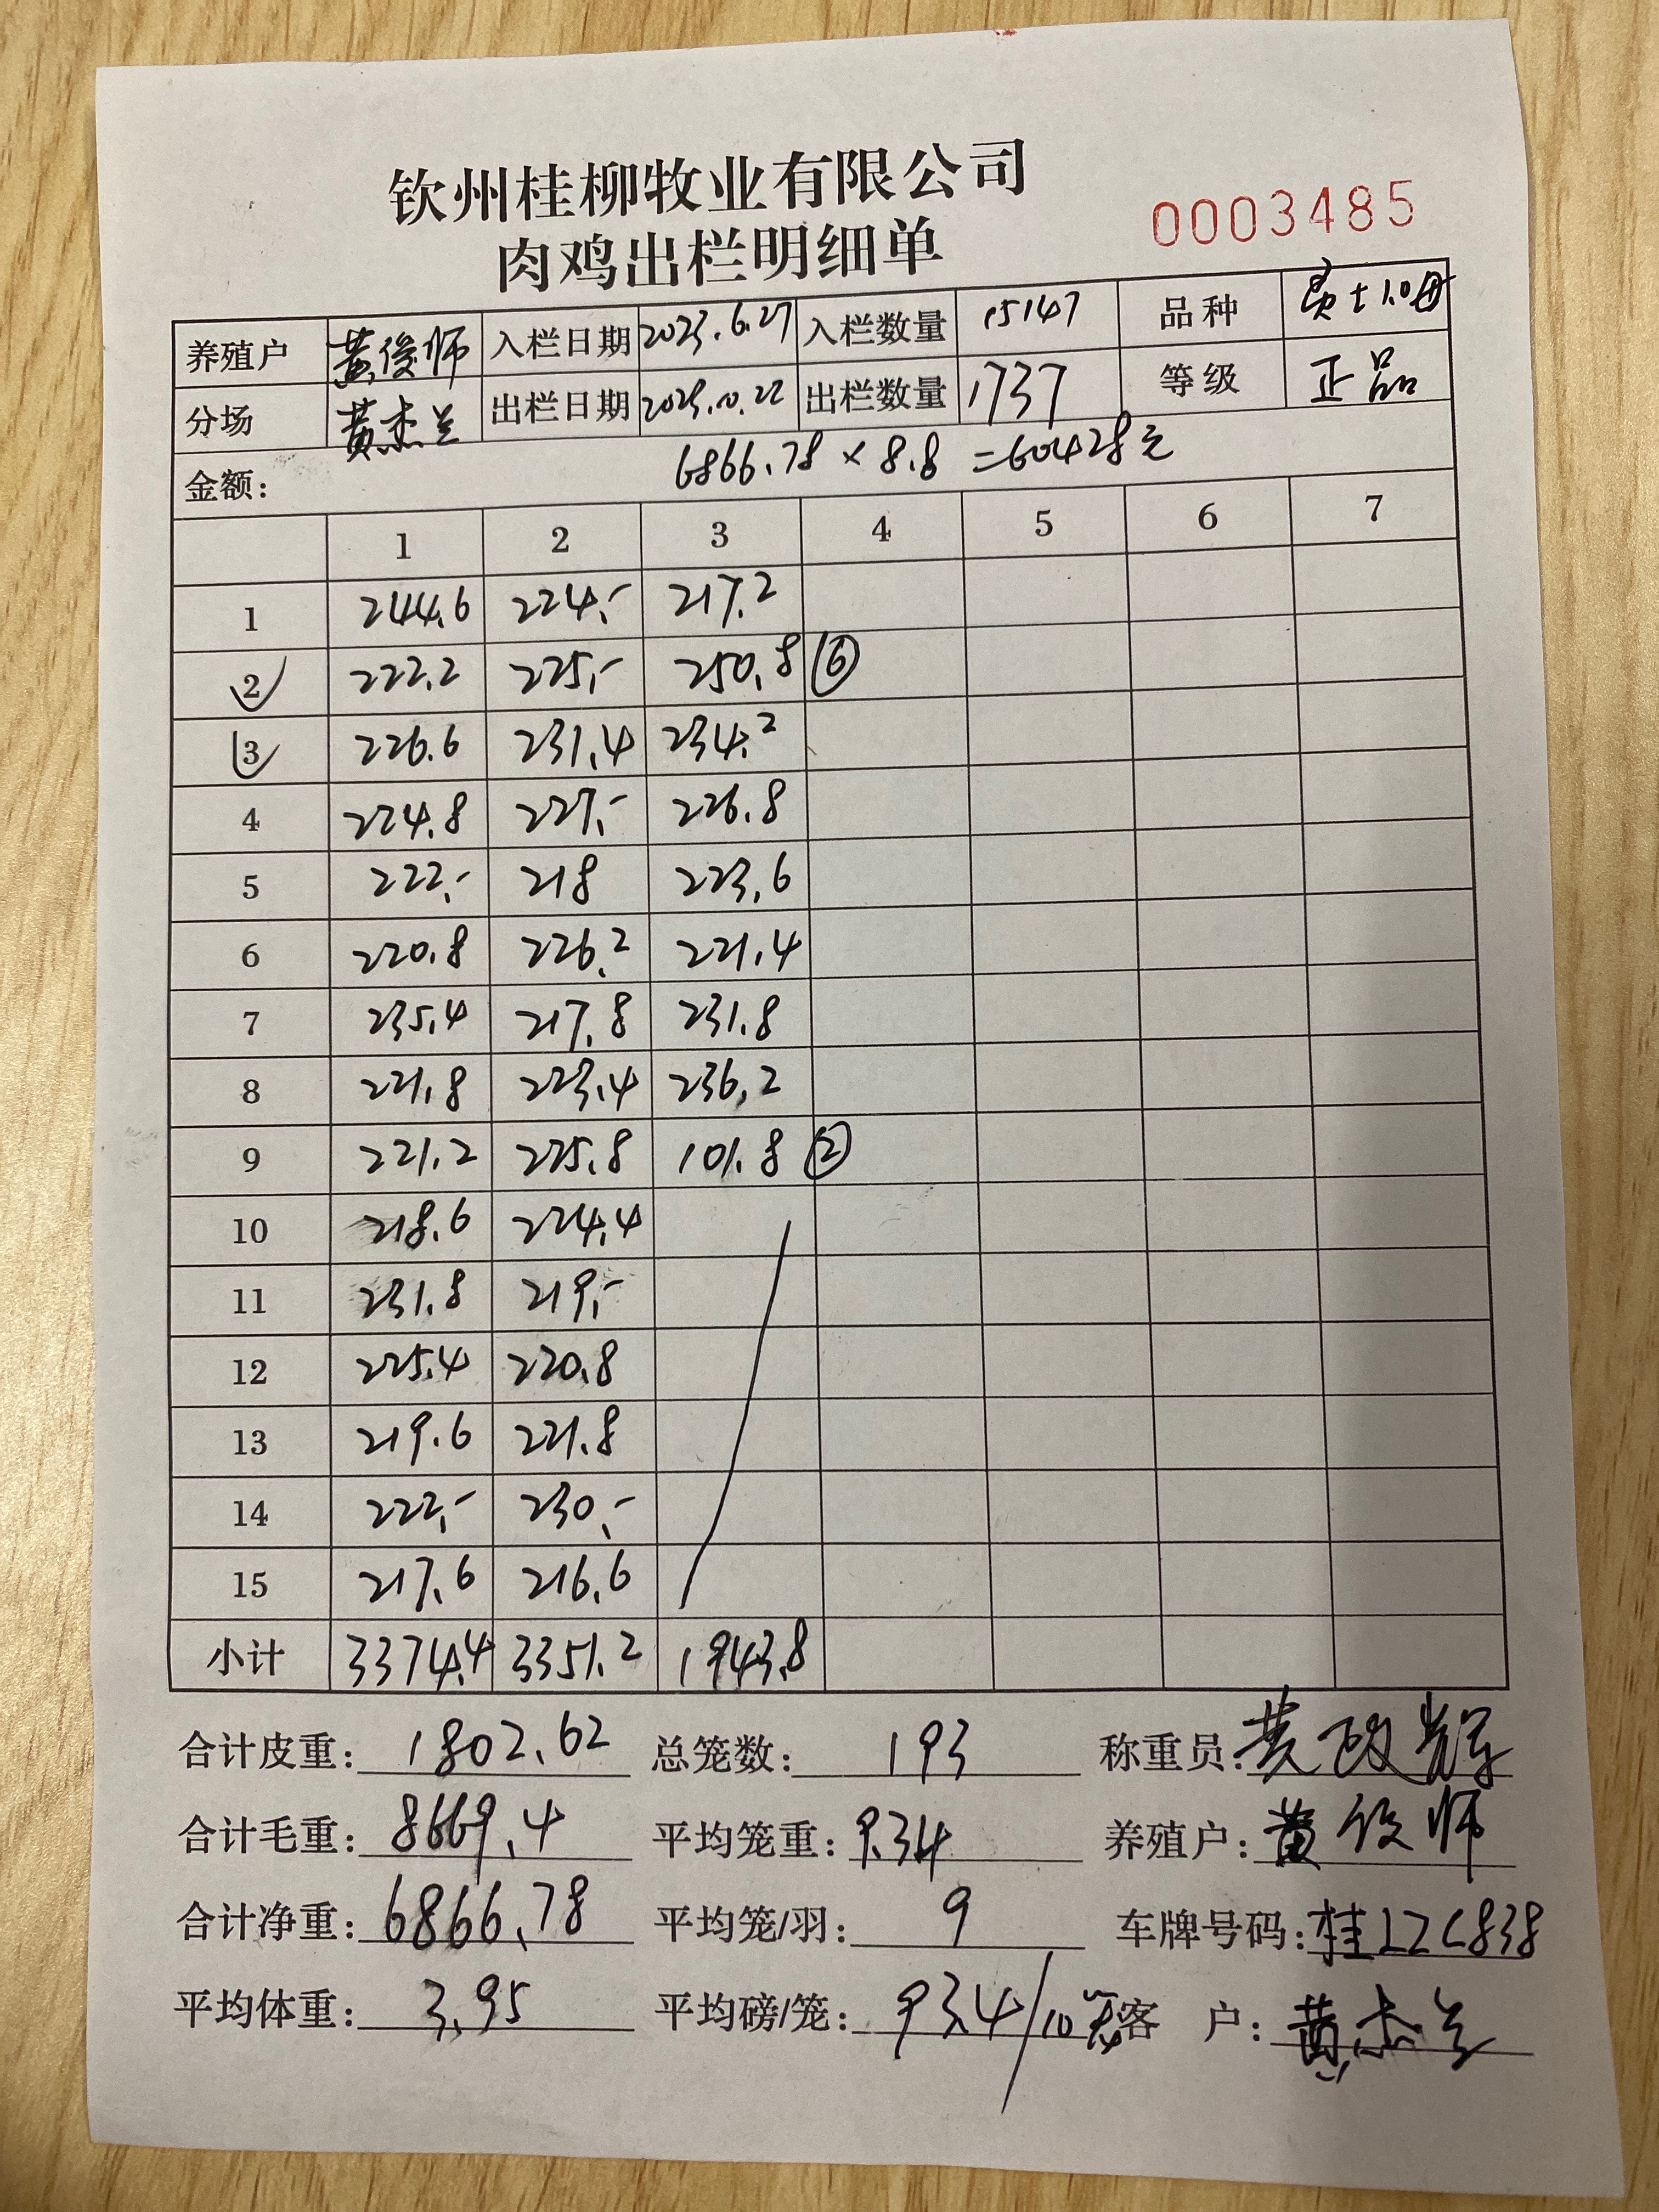 钦州桂柳牧业有限公司
肉鸡出栏明细单
0003485
养殖户 黄俊师 入栏日期 2023.6.27 入栏数量 15147 品种
分场 黄杰兰 出栏日期 2023.10.22 出栏数量 1737 等级 正品
金额: 6866.78 × 8.8 =60428元
1 2 3 4 5 6 7
1 244.6 224.- 217.2
2 222.2 225.- 250.8 ⑥
3 226.6 231.4 234.2
4 224.8 227.- 226.8
5 222.- 218 223.6
6 220.8 226.2 221.4
7 235.4 217.8 231.8
8 221.8 223.4 236.2
9 221.2 225.8 101.8 ②
10 218.6 224.4
11 231.8 219.-
12 225.4 220.8
13 219.6 221.8
14 222.- 230.-
15 217.6 216.6
小计 3374.4 3351.2 1943.8
合计皮重: 1802.62 总笼数: 193 称重员: 黄政辉
合计毛重: 8669.4 平均笼重: 9.34 养殖户: 黄俊师
合计净重: 6866.78 平均笼/羽: 9 车牌号码: 桂LZC838
平均体重: 3.95 平均磅/笼: 93.4/10笼 客 户: 黄杰兰